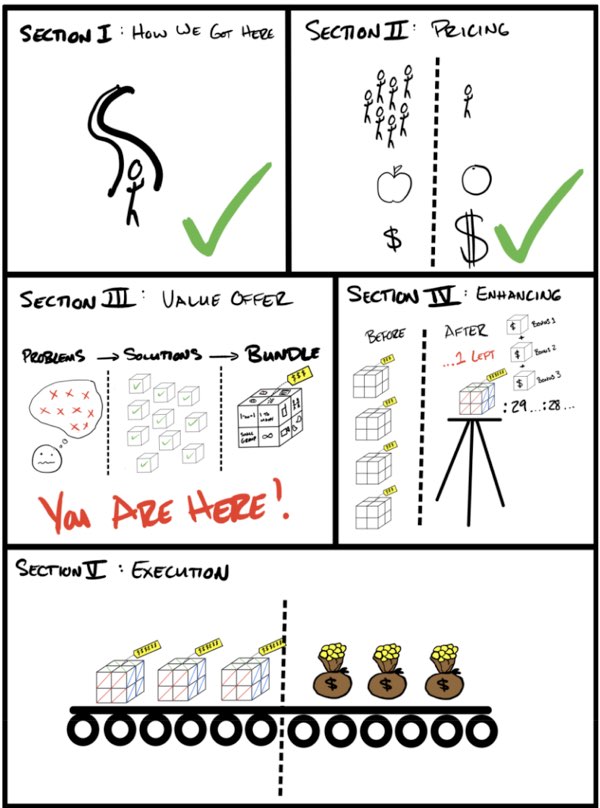 SECTION I: HOW WE GOT HERE
SECTION II: PRICING
$
$
SECTION III: VALUE OFFER
PROBLEMS → SOLUTIONS → BUNDLE
$$$
1-ON-1
1 TO MANY
SMALL GROUP
∞
YOU ARE HERE!
SECTION IV: ENHANCING
BEFORE
AFTER
...1 LEFT
$ BONUS 1
+
$ BONUS 2
+
$ BONUS 3
:29...:28...
SECTION V: EXECUTION
$
$
$